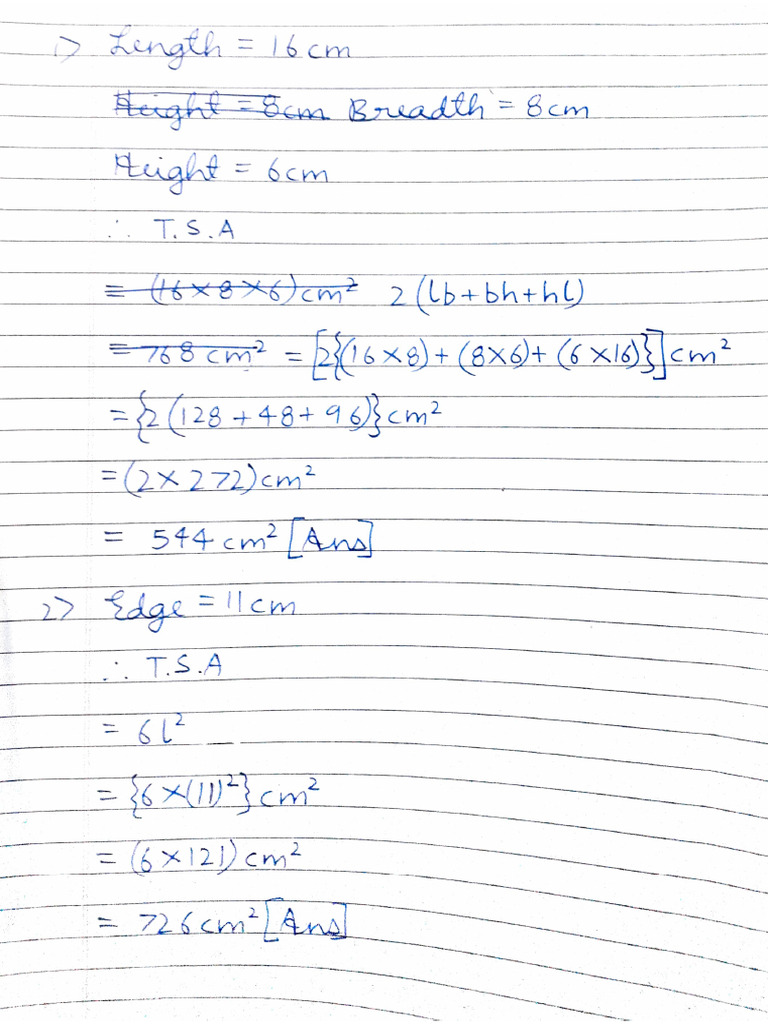 1> Length = 16 cm
Height = 8cm Breadth = 8cm
Height = 6cm
∴ T.S.A
= (16 × 8 × 6) cm² 2 (lb + bh + hl)
= 768 cm² = [2{(16 × 8) + (8×6) + (6 × 16)}] cm²
= {2 (128 + 48 + 96)} cm²
= (2 × 272) cm²
= 544 cm² [Ans]
2> Edge = 11 cm
∴ T.S.A
= 6l²
= {6 × (11)²} cm²
= (6 × 121) cm²
= 726 cm² [Ans]